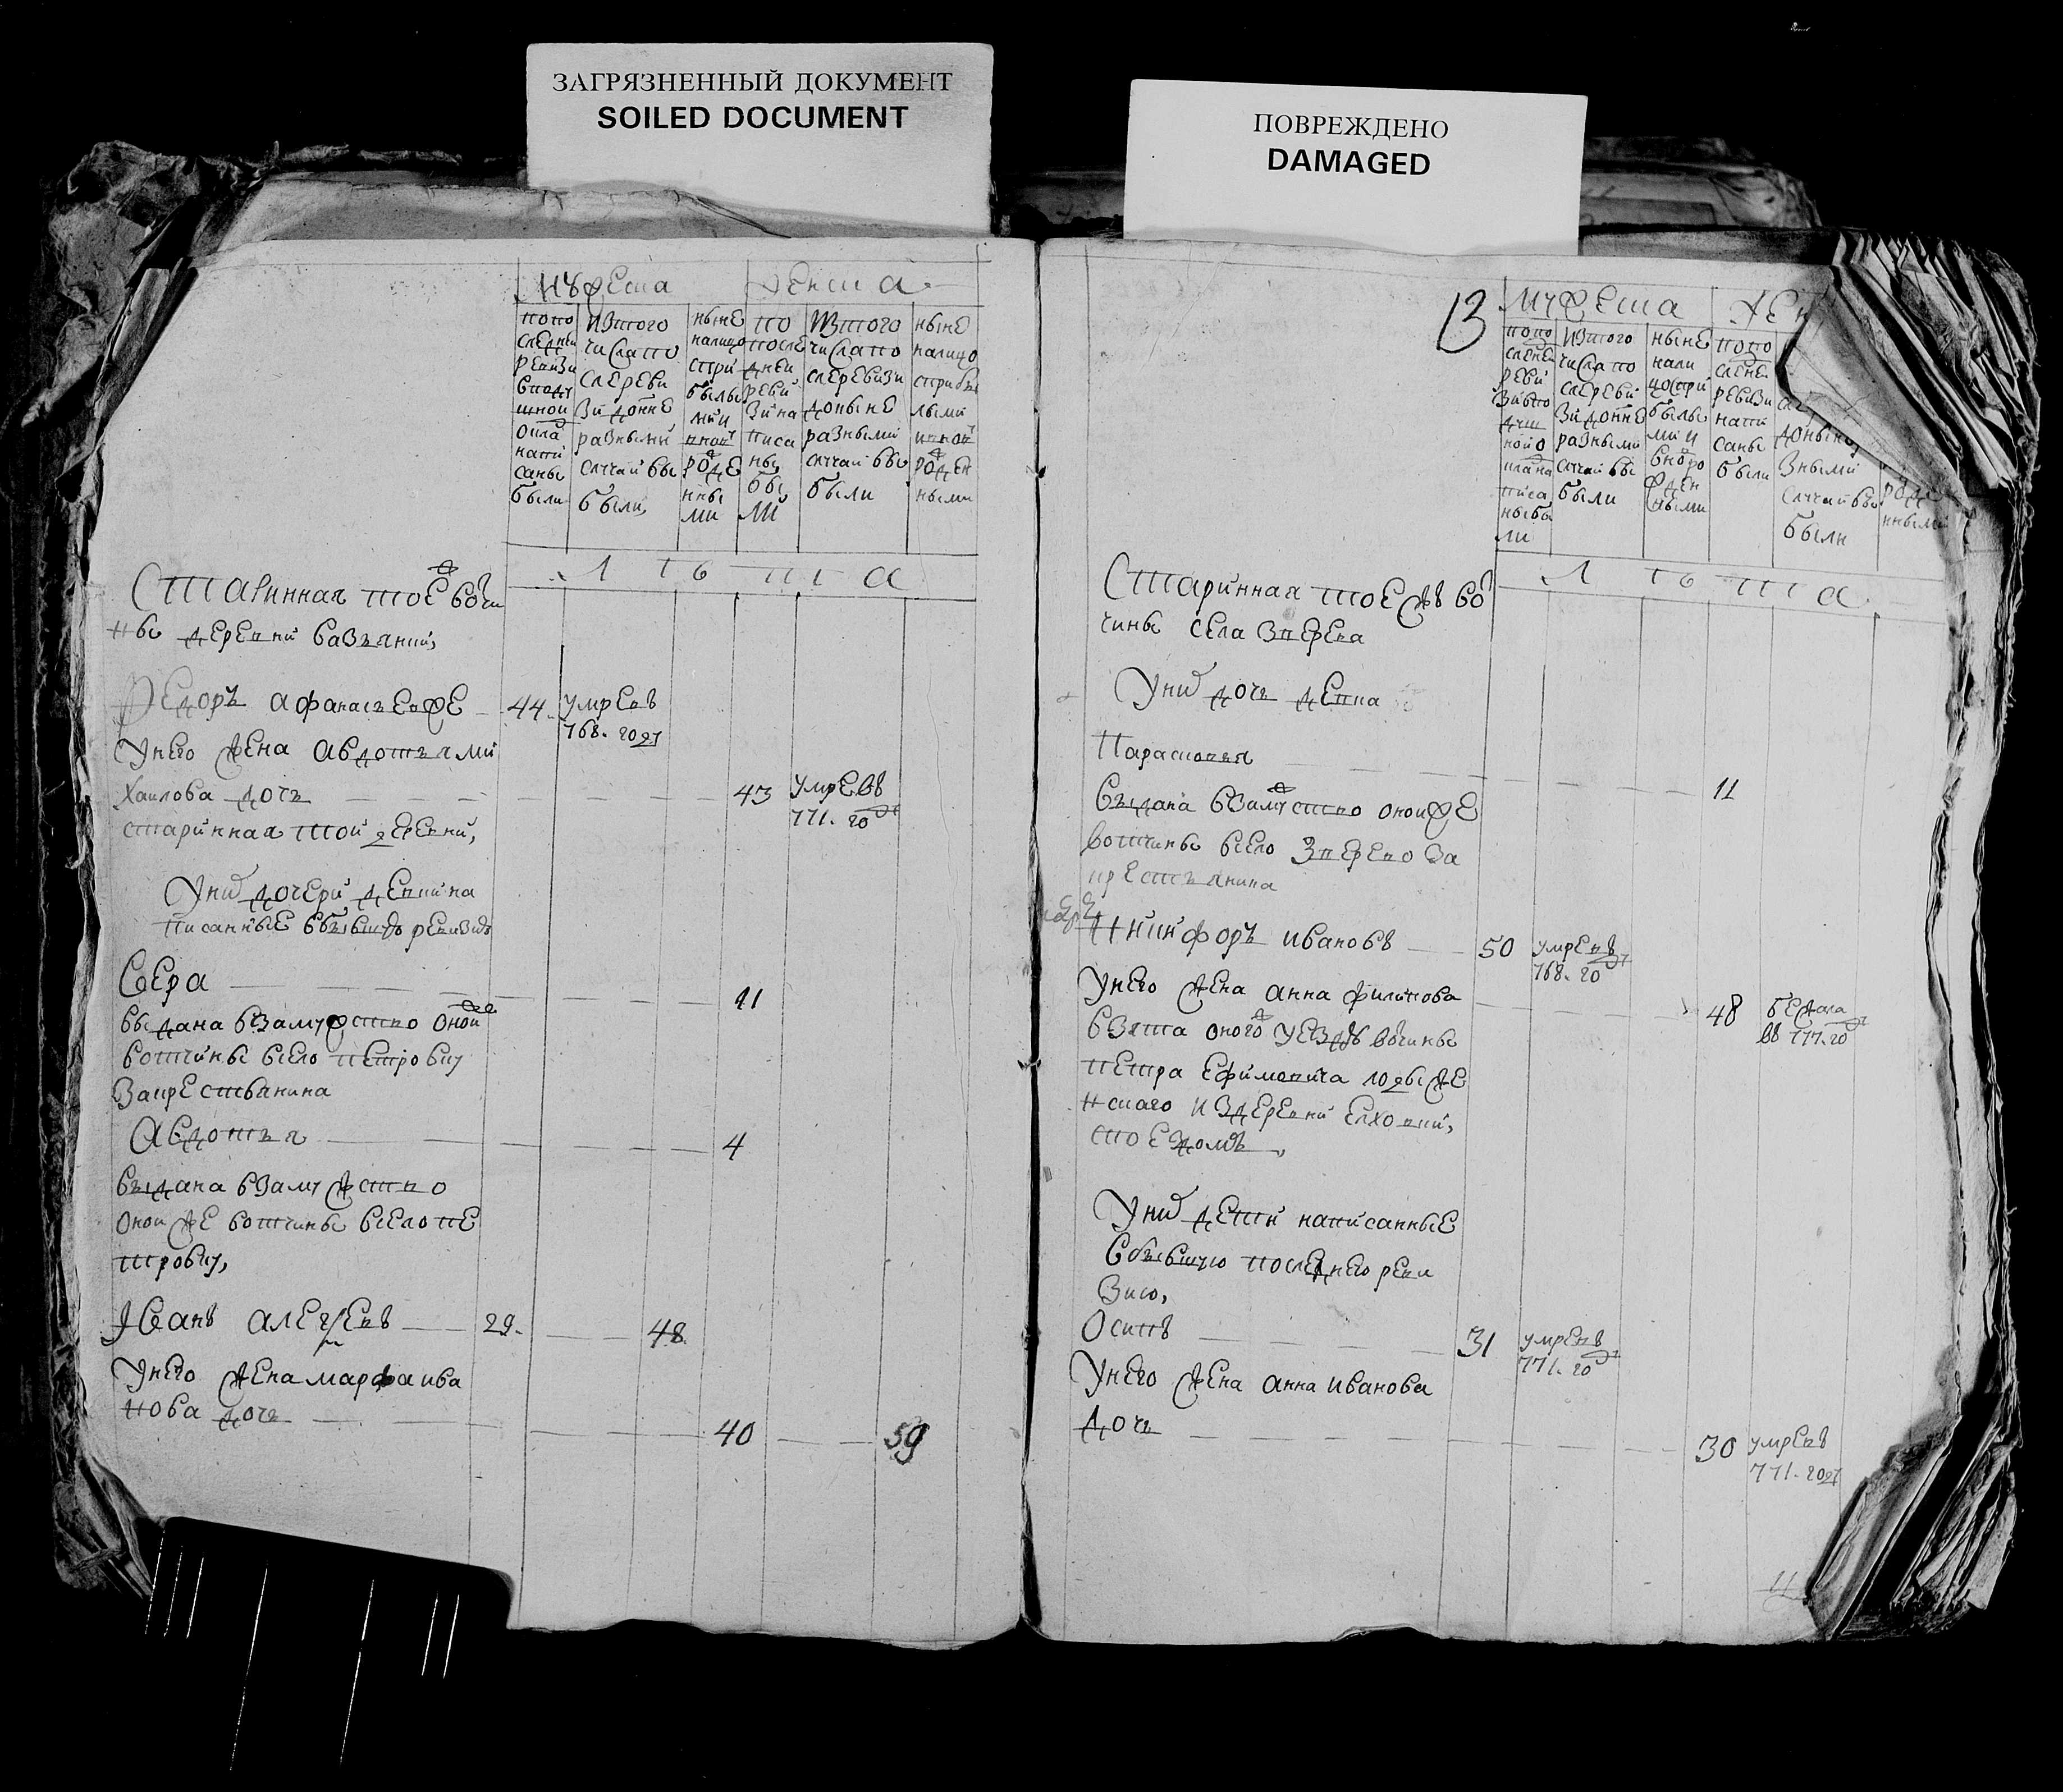 ЗАГРЯЗНЕННЫЙ ДОКУМЕНТ
SOILED DOCUMENT
ПОВРЕЖДЕНО
DAMAGED
мужеска женска
попо
следней
реви
вподу
шной
окла
напи
саны
были
изтого
числапо
слереви
зи донне
разными
случаи вы
были
ныне
налицо
спри
былы
ми и
рожде
нны
ми
по
после
дней
реви
зи на
писа
ны
бы
ли
изтого
числапо
слеревизи
доныне
разными
случаи вы
были
ныне
налицо
сприбы
лыми
рожден
ными
л т ъ и с а
Старинная тоежвочи
ны деревни вазьянки,
Федоръ афанасьевже 44 умревъ
768. году
Унего жена авдотья ми
хаилова дочь 43 умревъ
771. году
старинная той деревни,
Уних дочери девкина
писанные вбывшую ревизию
Вера 11
выдана взамужство оной
вотчины всело петровку
закрестьянина
Авдотья 4
выдана взамужство
оной же вотчины всело пе
тровку,
Иванъ алексеевъ 29. 48
Унего жена марфа ива
нова дочь 40 59
13
мужеска жен
попо
следне
реви
зи впо
душ
ной о
клана
писа
ны бы
ли
изтого
числа по
слереви
зи донне
разными
случаи вы
были
ныне
нали
цоспри
былы
ми и
внбро
жден
ными
попо
следне
ревизи
напи
саны
были
доныне
зными
случаи вы
были
рожде
нными
Старинная тоежъ во
чины села зверева
Уних дочь девка
Парасковья 11
выдана взамужство оной же
вотчины всело зверево за
крестьянина
Никифоръ ивановъ 50 умревъ
768. году
Унего жена анна филипова 48 бежала
въ 777. году
взята оногож уезду вочины
петра ефимовича лодыже
нскаго издеревни елховки,
стоежомъ,
Уних дети написанные
вбывшую последнею реви
зию,
Осипъ 31 умревъ
771. году
Унего жена анна иванова
дочь 30 умревъ
771. году